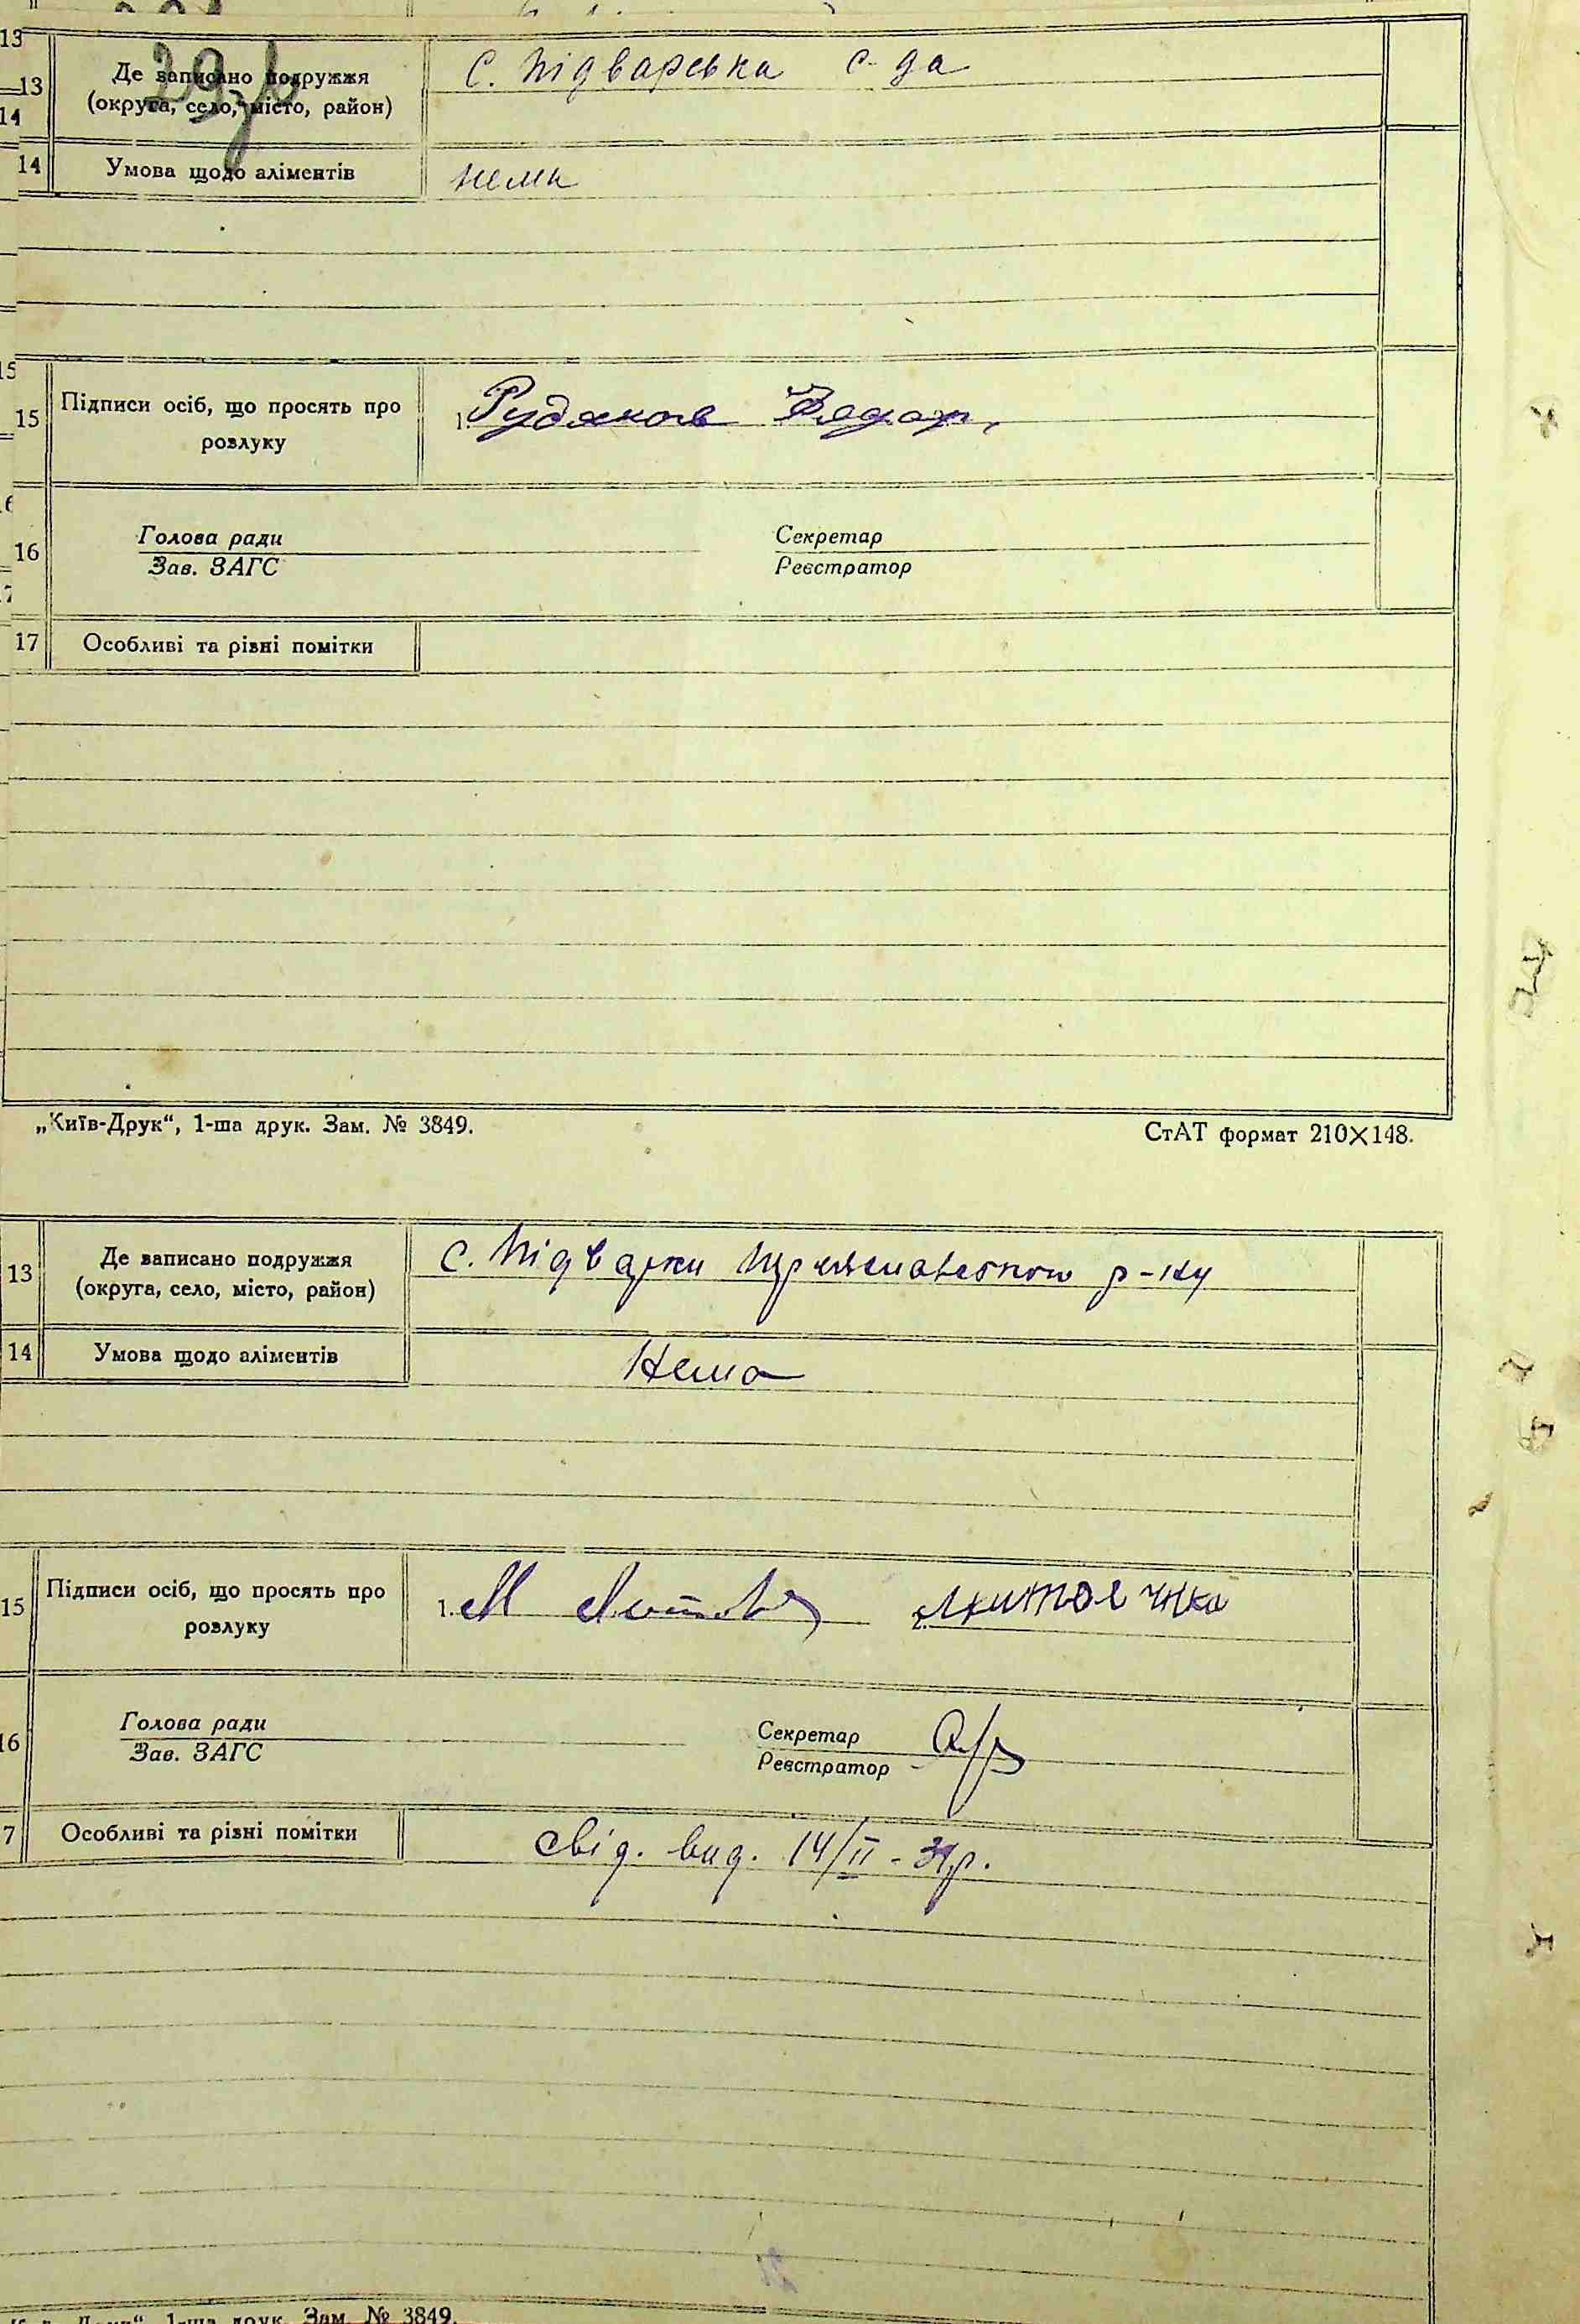 13
13
Де записано подружжя
(округа, село, місто, район)
С. Підварська с-да
14
14
Умова щодо аліментів
нема
15
15
Підписи осіб, що просять про
розлуку
1. Рудяков
16
Голова ради
Зав. ЗАГС
Секретар
Реєстратор
17
Особливі та різні помітки
„Київ-Друк“, 1-ша друк. Зам. № 3849.
СтАТ формат 210×148.
13
Де записано подружжя
(округа, село, місто, район)
С. Підварки р-ну
14
Умова щодо аліментів
Нема
15
Підписи осіб, що просять про
розлуку
1. М 2.
16
Голова ради
Зав. ЗАГС
Секретар
Реєстратор
7
Особливі та різні помітки
Свід. вид. 14/II - 31р.
Друк“, 1-ша друк. Зам. № 3849.